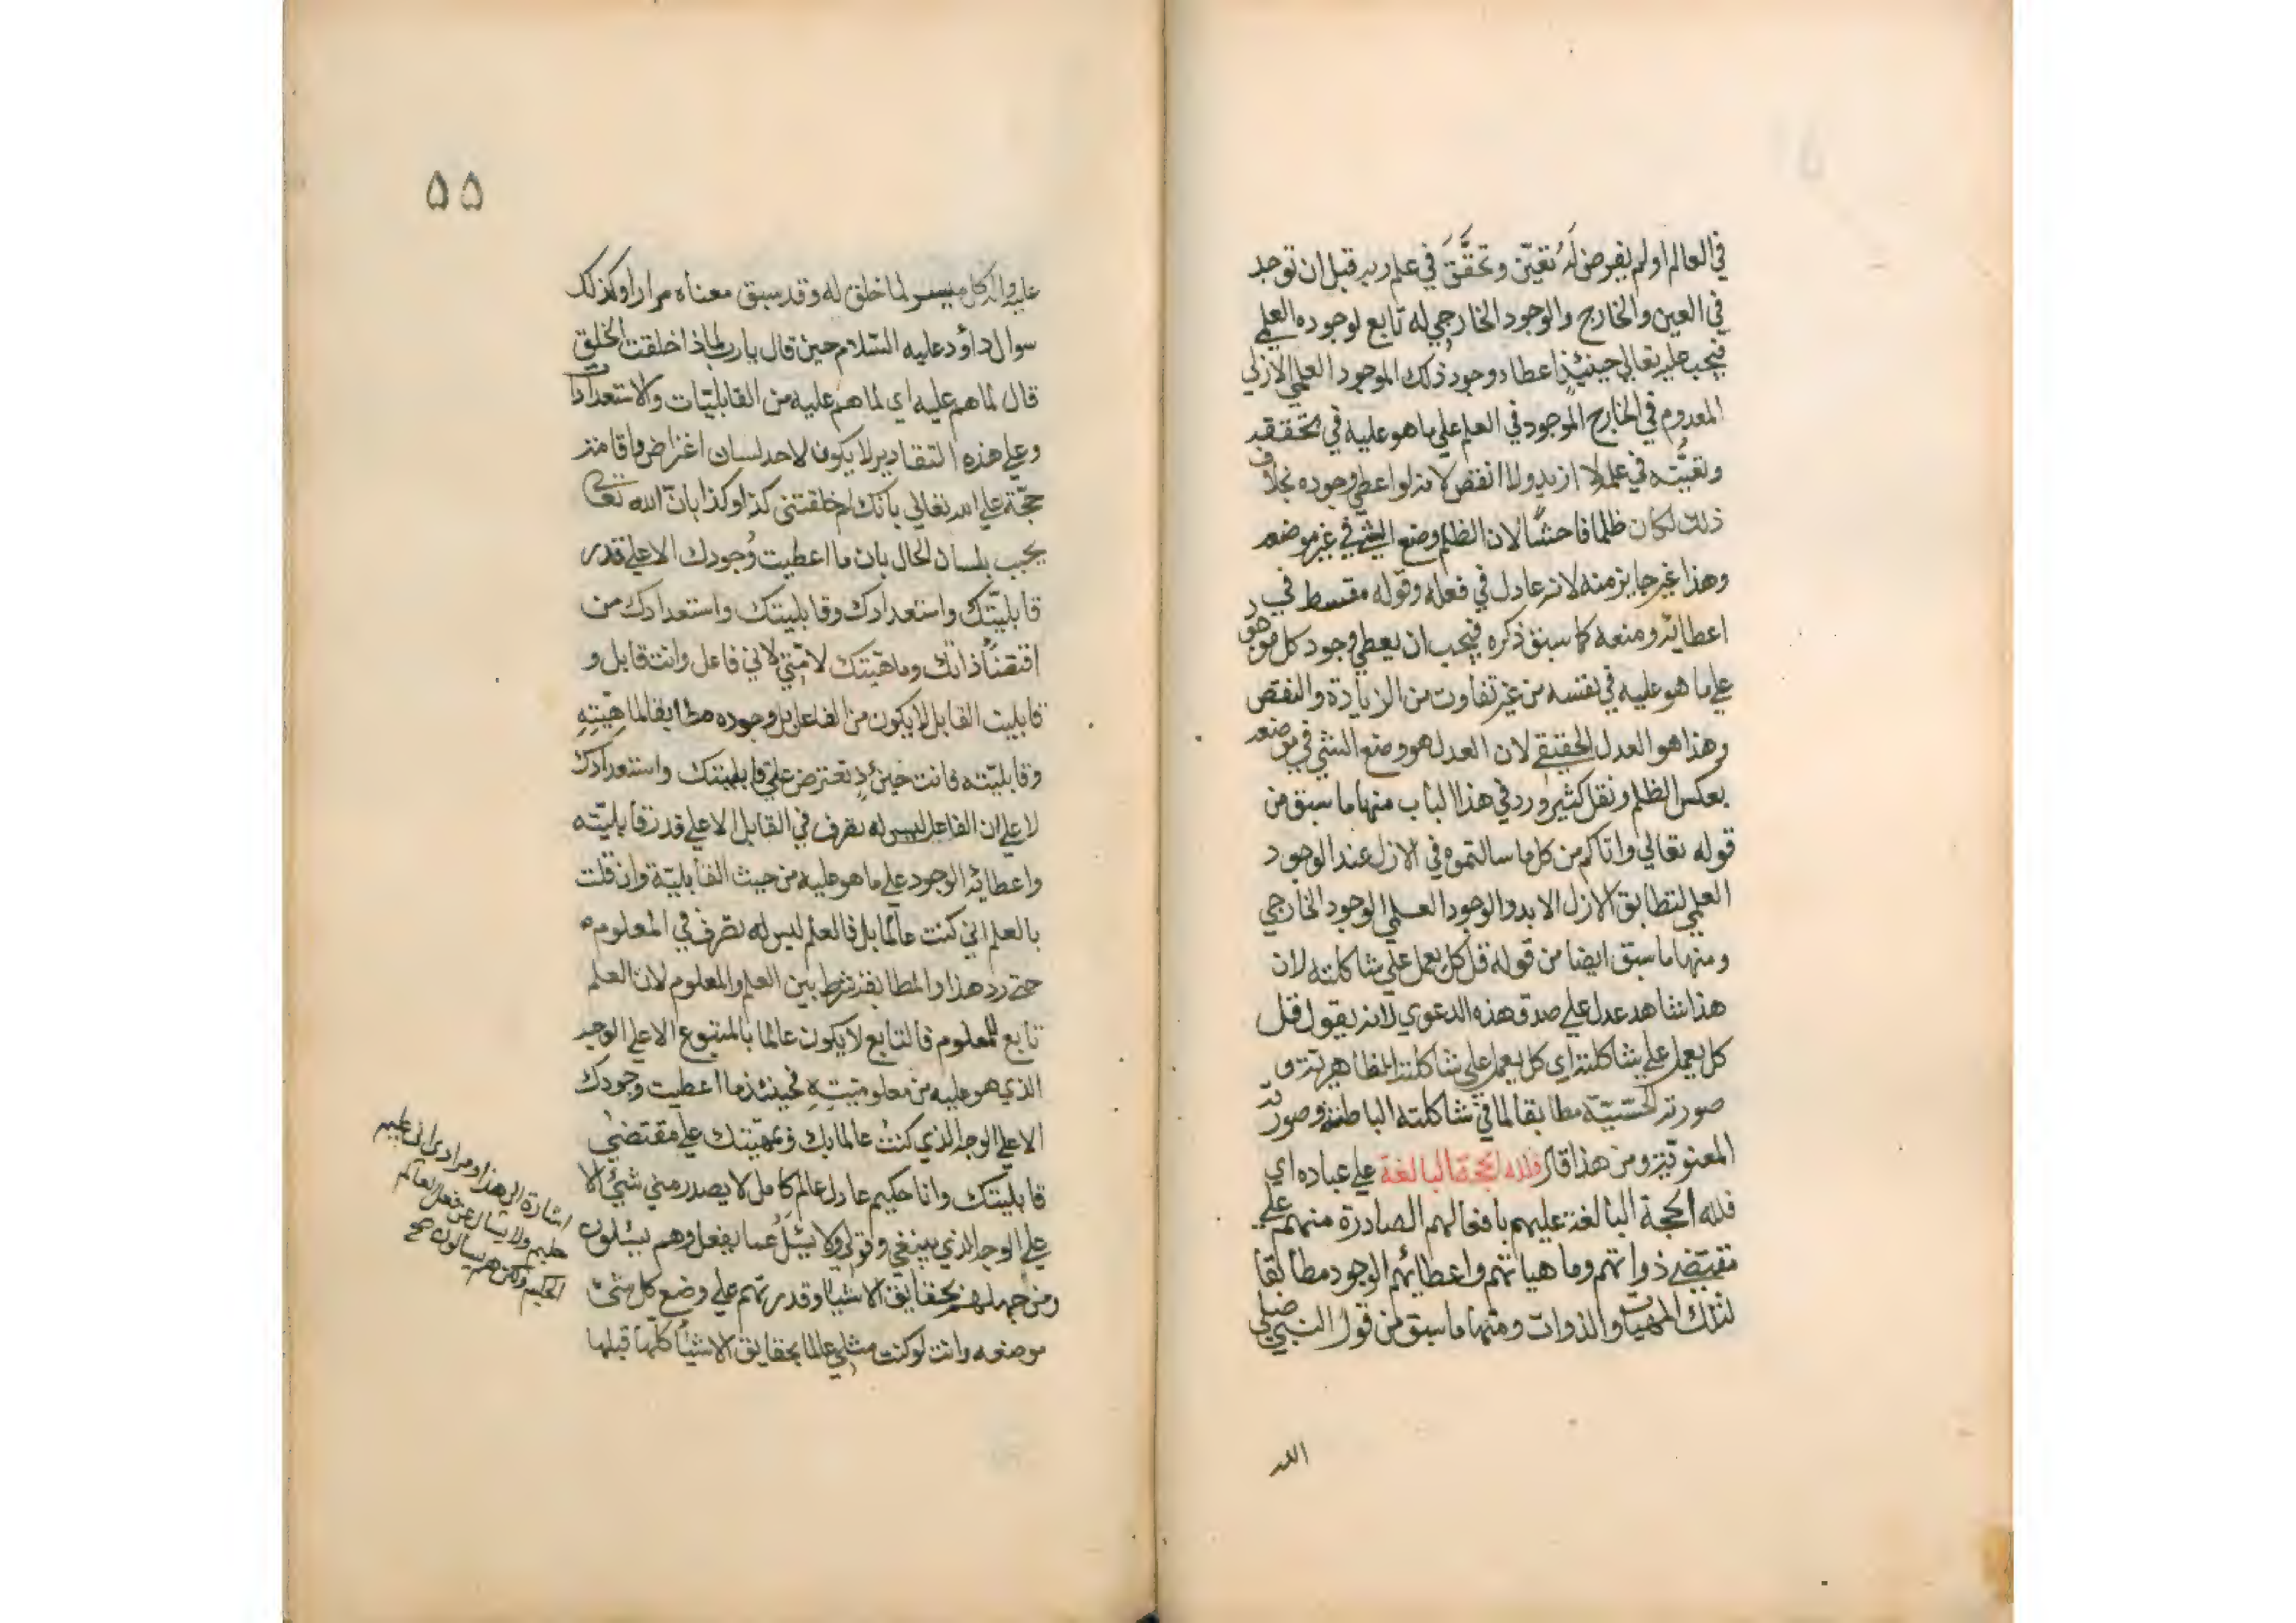 في العالم او لم يفرض لَهُ تعيّن وتحقَّقَ في علم ربه قبل ان توجد
في العين والخارج والوجود الخارجي له تابع لوجوده العلمي
فيجب عليه تعالى حينئذٍ اعطاء وجود ذلك الموجود العلمي الازلي
المعدوم في الخارج الموجود في العلم على ما هو عليه في تحققه
وتعيُّنه في علمه لا ازيد ولا انقص لانه لو اعطى وجوده بخلاف
ذلك لكان ظلما فاحشًا لان الظلم وضع الشي في غير موضعه
وهذا غير جايز منه لانه عادل في فعله وقوله مقسط في
اعطائه ومنعه كما سبق ذكره فيجب ان يعطي وجود كل موجود
على ما هو عليه في نفسه من غير تفاوت من الزيادة والنقص
وهذا هو العدل الحقيقي لان العدل هو وضع الشي في موضعه
بعكس الظلم ونقل كثير ورد في هذا الباب منها ما سبق من
قوله تعالي واتاكم من كل ما سالتموه في الازل عند الوجود
العلمي لتطابق الازل الابد والوجود العلمي الوجود الخارجي
ومنها ما سبق ايضا من قوله قل كل يعمل على شاكلته لان
هذا شاهد عدل على صدق هذه الدعوي لانه يقول قل
كل يعمل على شاكلته اي كل يعمل على شاكلته الظاهرية و
صورته الحسّيّة مطابقا لما في شاكلته الباطنة وصورته
المعنويّة ومن هذا قال فلله الحجة البالغة على عباده اي
فلله الحجة البالغة عليهم بافعالهم الصادرة منهم على
مقتضى ذواتهم وماهياتهم واعطائهم الوجود مطابقا
لتلك المهيات والذوات ومنها ما سبق من قول النبي صلى
الله
٥٥
عليه واله كل ميسر لما خلق له وقد سبق معناه مرارا وكذلك
سوال داؤد عليه السّلام حين قال يا رب لماذا خلقت الخلق
قال لما هم عليه اي لما هم عليه من القابليّات والاستعدادات
وعلى هذه التقادير لا يكون لاحد لسان اعتراض واقامة
حجّة على الله تعالي بانك لم خلقتني كذا وكذا بانّ الله تعالى
يجيب بلسان الحال بان ما اعطيت وُجودك الا على قدر
قابليّتك واستعدادك وقابليتك واستعدادك من
اقتضاء ذاتك وماهيّتك لا منّي لاني فاعل وانت قابل و
قابليت القابل لا يكون من الفاعل بل وجوده مطابقا لماهيّتِهِ
وقابليّته فانت حينئذٍ تعترض على قابليتك واستعدادك
لا على ان الفاعل ليس له تصرف في القابل الا على قدر قابليّته
واعطائه الوجود على ما هو عليه من حيث القابليّة وان قلت
بالعلم اني كنت عالما بك فالعلم ليس له تصرف في المعلوم
حتى رد هذا والمطابقة شرط بين العلم والمعلوم لان العلم
تابع للمعلوم فالتابع لا يكون عالما بالمتبوع الا على الوجه
الذي هو عليه من معلوميّتِهِ فحينئذ ما اعطيت وجودك
الا على الوجه الذي كنتُ عالما بك وبمهيّتك على مقتضىٰ
قابليتك وانا حكيم عادل عالم كامل لا يصدر مني شيئ الا
على الوجه الذي ينبغي وقولي ولا يسئل عما يفعل وهم يسئلون
ومن جهلهم بحقايق الاشياء وقدرتهم على وضع كل شئ
موضعه وانت لو كنت مثلي عالما بحقايق الاشياء كلّها قبلها
اشارة الى هذا ومرادي اني عليم
حليم ولا يسال عن فعل العالم
الحكيم ولكن هم يسالون صح